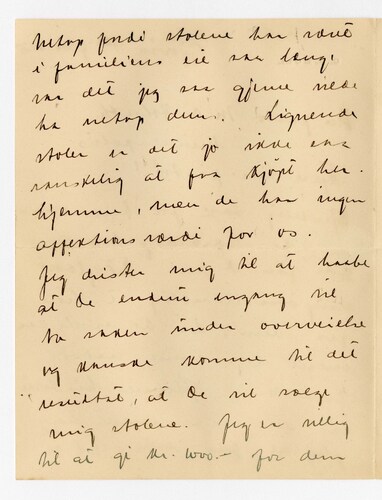 netop fordi stolene har været
i familiens eie saa længe
var det jeg saa gjerne vilde
ha netop dem. Lignende
stoler er det jo ikke saa
vanskelig at faa kjöpt her
hjemme, men de har ingen
affektionsværdi for os.
Jeg drister mig til at haabe
at De endnu engang vil
ta saken under overveielse
og kanske komme til det
resultat, at De vil sælge
mig stolene. Jeg er villig
til at gi kr. 1000.- for dem